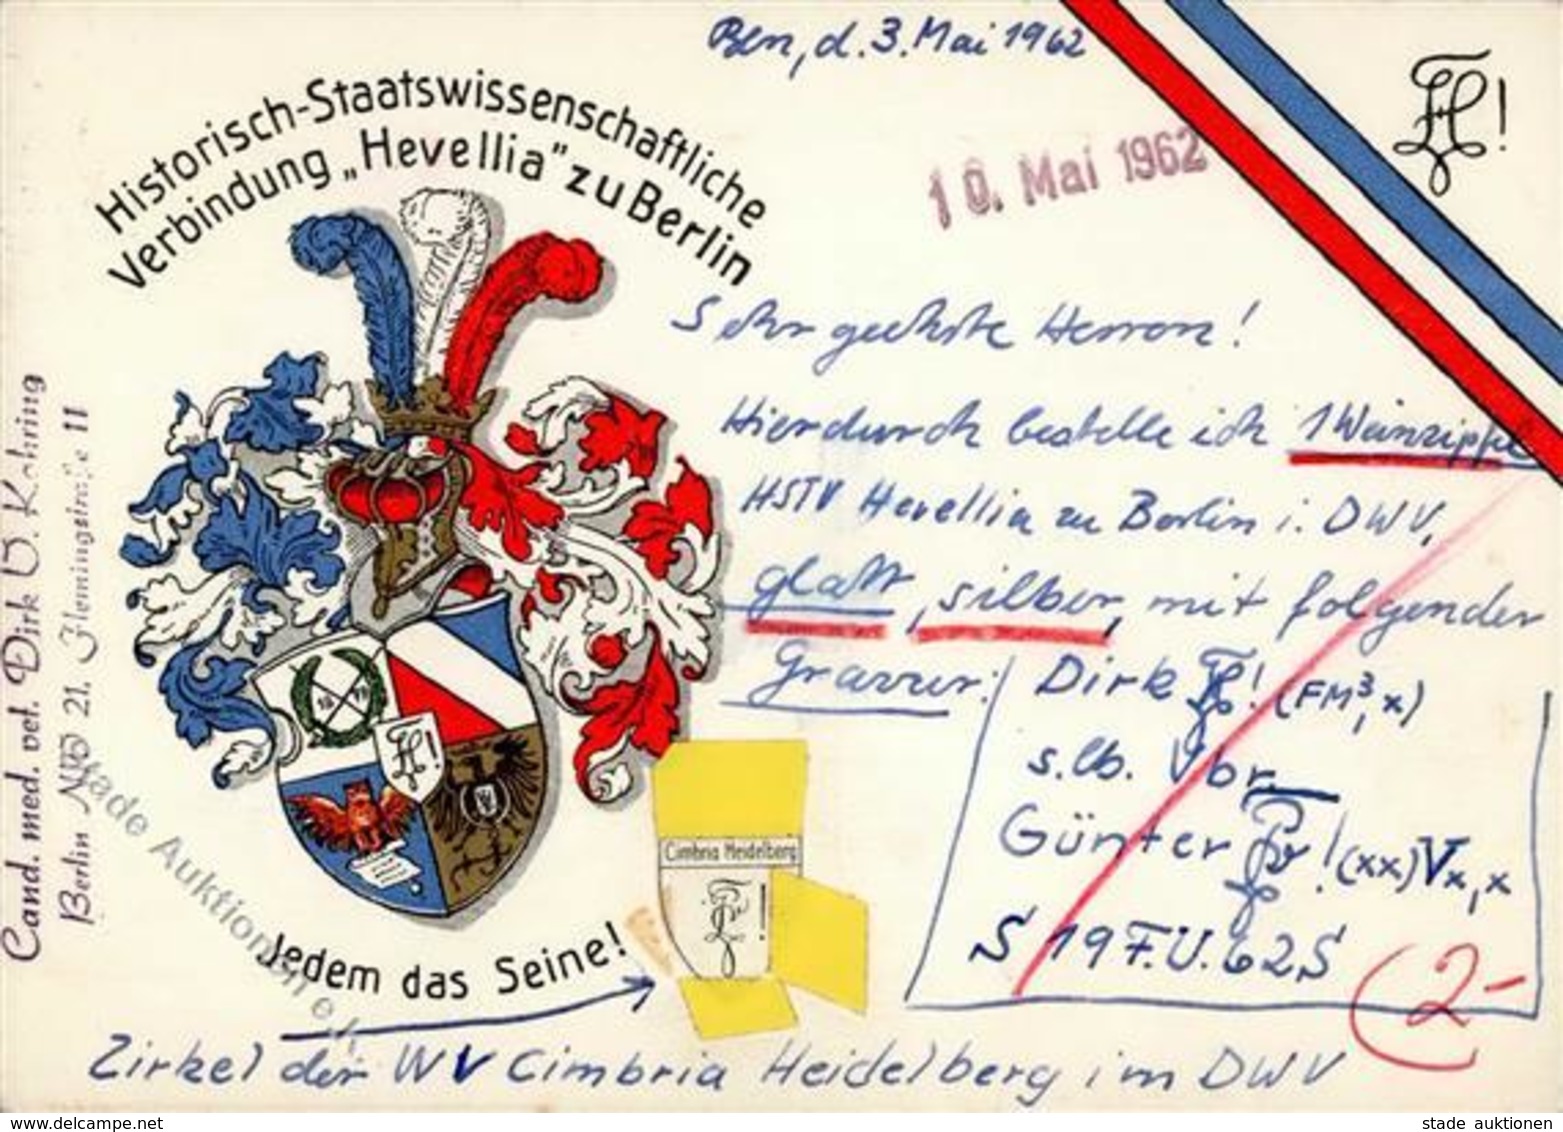 Bln, d. 3. Mai 1962
10. Mai 1962
Historisch-Staatswissenschaftliche
Verbindung „Hevellia" zu Berlin
Sehr geehrte Herren!
Hierdurch bestelle ich 1 Weinzipfel
HSTV Hevellia zu Berlin i. DWV,
glatt, silber, mit folgender
Gravur:
Dirk H! (FM³, x)
s. lb. Vbr.
Günter! (xx) Vx, x
S 19 F.U. 62 S
2-
Cimbria Heidelberg
Jedem das Seine!
Zirkel der WV Cimbria Heidelberg im DWV
Cand. med. vet. Dirk
Berlin NW 21, Flemingstraße 11
Stade Auktionen
www.delcampe.net
stade auktionen